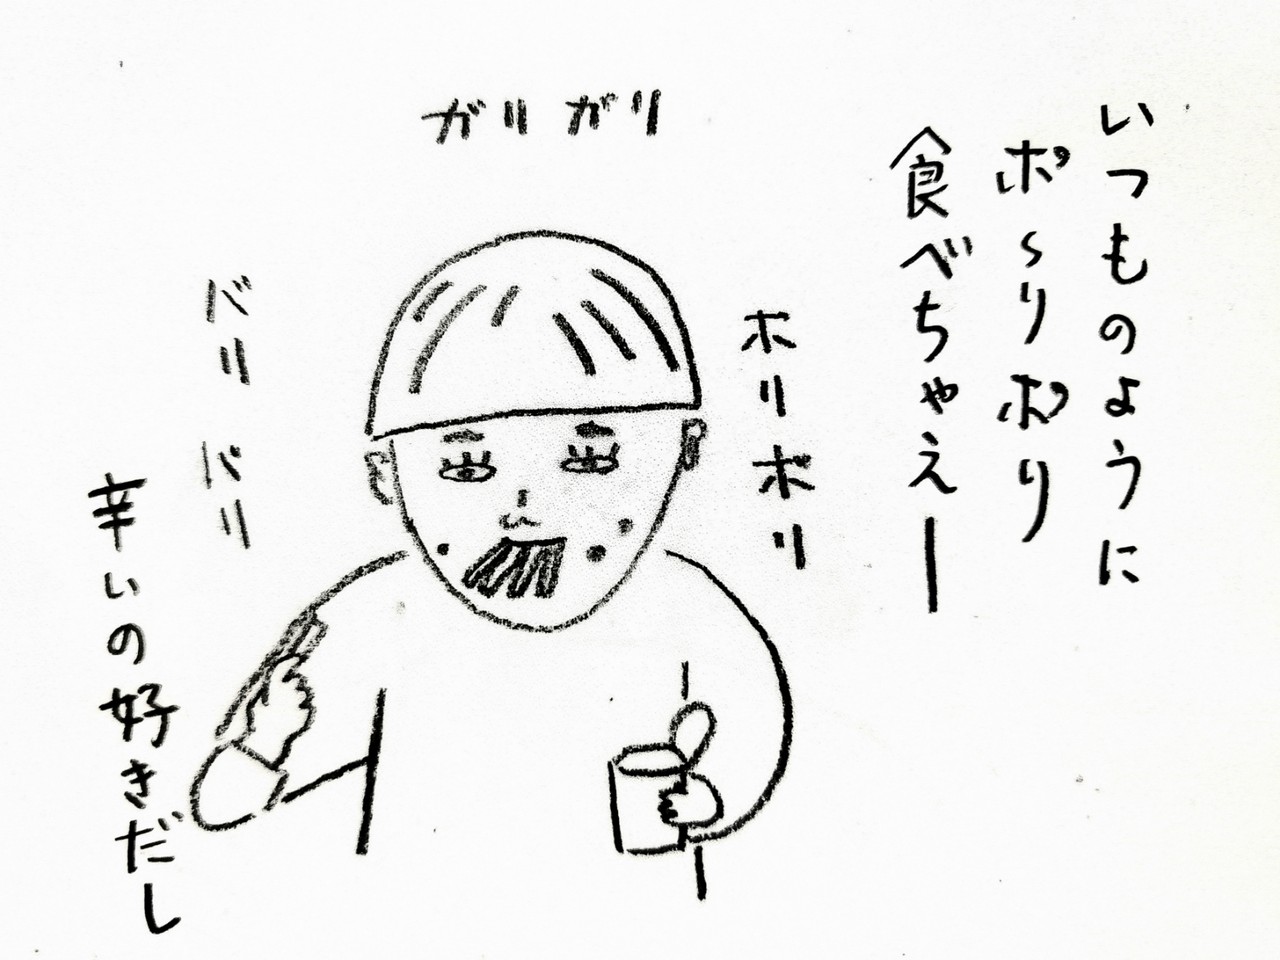 いつものように
ポ～リポリ
食べちゃえー
ガリガリ
ボリボリ
バリバリ
辛いの好きだし